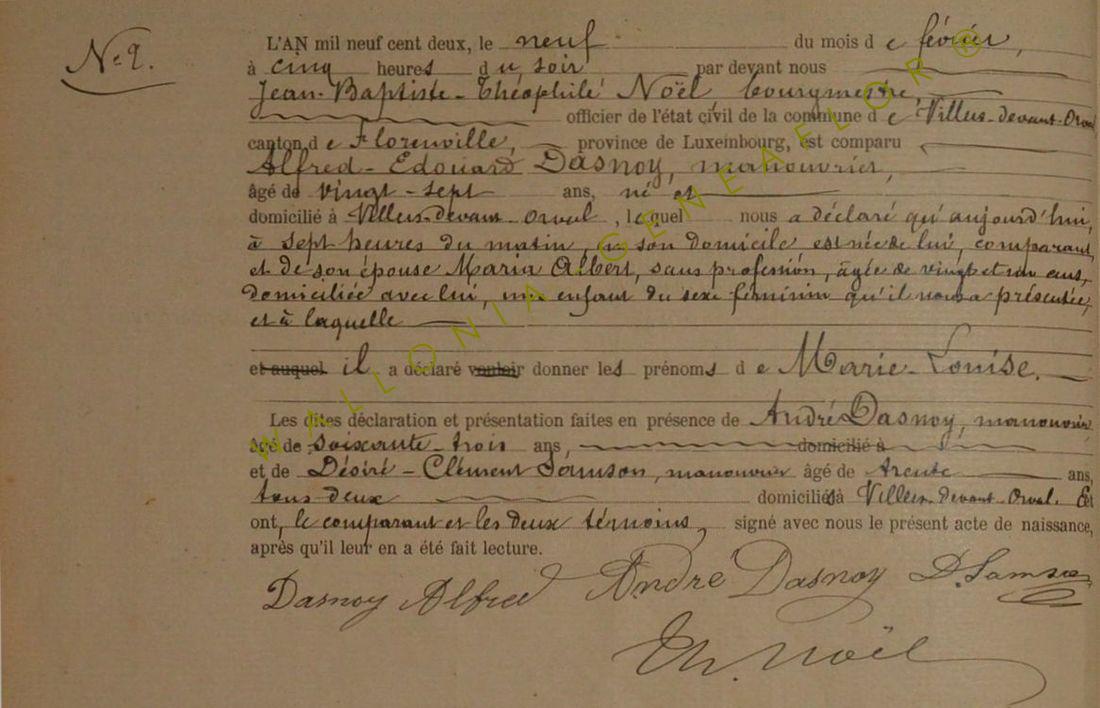 N.º 9.
L'AN mil neuf cent deux, le neuf du mois de février,
à cinq heures du soir par devant nous
Jean-Baptiste-Théophile Noël, bourgmestre,
officier de l'état civil de la commune de Villers-devant-Orval
canton de Florenville, province de Luxembourg, est comparu
Alfred-Edouard Dasnoy, manouvrier,
âgé de vingt-sept ans, né et
domicilié à Villers-devant-Orval, lequel nous a déclaré qu'aujourd'hui,
à sept heures du matin, en son domicile est née de lui, comparant,
et de son épouse Maria Albert, sans profession, âgée de vingt et un ans,
domiciliée avec lui, une enfant du sexe féminin qu'il nous a présentée,
et à laquelle
et auquel il a déclaré vouloir donner les prénoms de Marie-Louise.
Les dites déclaration et présentation faites en présence de André Dasnoy, manouvrier
âgé de soixante-trois ans, domicilié à
et de Désiré-Clément Samson, manouvrier âgé de trente ans,
tous deux domiciliés à Villers-devant-Orval. Et
ont, le comparant et les deux témoins, signé avec nous le présent acte de naissance,
après qu'il leur en a été fait lecture.
Dasnoy Alfred André Dasnoy D. Samson
Th. Noël
WALLONIA GENEAELOR ®